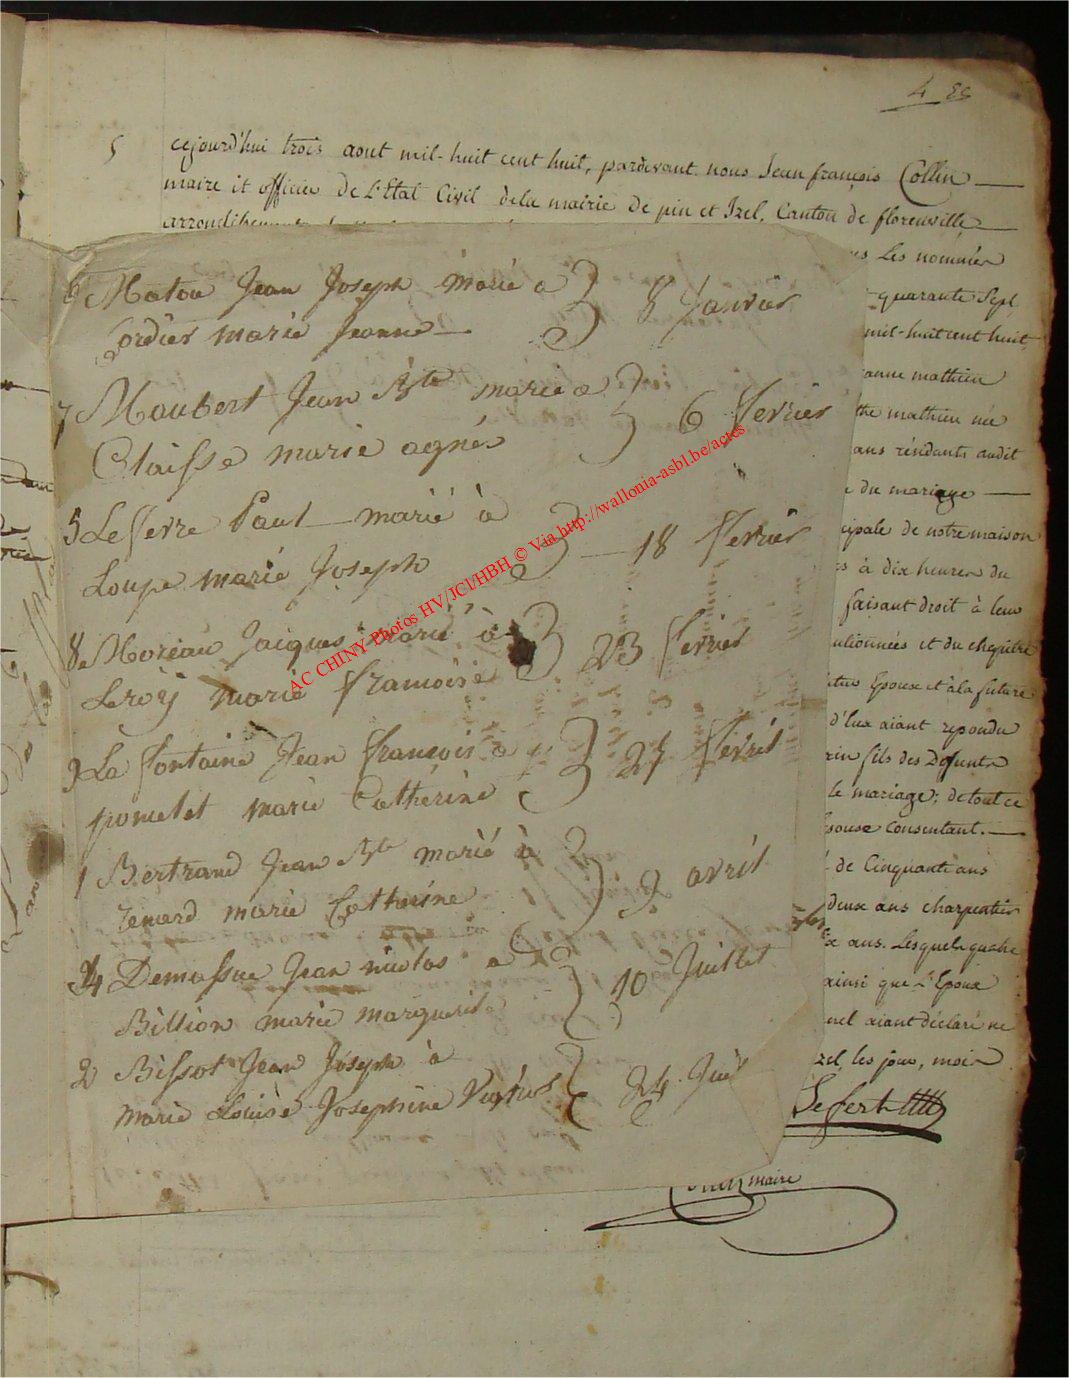 4
5 cejourd'hui trois aout mil-huit cent huit, pardevant nous Jean françois Collin
maire et officier de L'Etat Civil dela mairie de pin et Izel, Canton de florenville
us Les nommés
quarante Sept
mil-huit cent huit
anne mathieu
the mathieu née
ans résidants audit
du mariage
cipale de notre maison
s à dix heures du
faisant droit à leur
ntionnées et du chapitre
Epoux et à la future
d'Eux aiant repondu
rin fils des Defunts
le mariage; de tout ce
Epouse Consentant.
de Cinquante ans
deux ans charpentier
x ans. Lesquels quatre
ainsi que L'Epoux
nel aiant déclaré ne
zel les jour, mois
maire
6 Maton Jean Joseph marié a 8 Janvier
Cordier marie Jeanne
7 Maubert Jean Bte marié a 6 fevrier
Claisse marie agnés
5 Lefevre Paul marié à 18 fevrier
Loupe marie Joseph
8 Moreau Jacques marié à 23 fevrier
Leroÿ marie francoise
9 La fontaine Jean francois a 27
poncelet marie Catherine
1 Bertrand Jean Bte marié à 9 avril
marie Catherine
4 Jean nicolas a 10 Juillet
Billion marie marguerite
2 Bissot Jean Joseph à 24
marie Louise Josephine
AC CHINY Photos HV/JCl/HBH © Via http://wallonia-asbl.be/actes